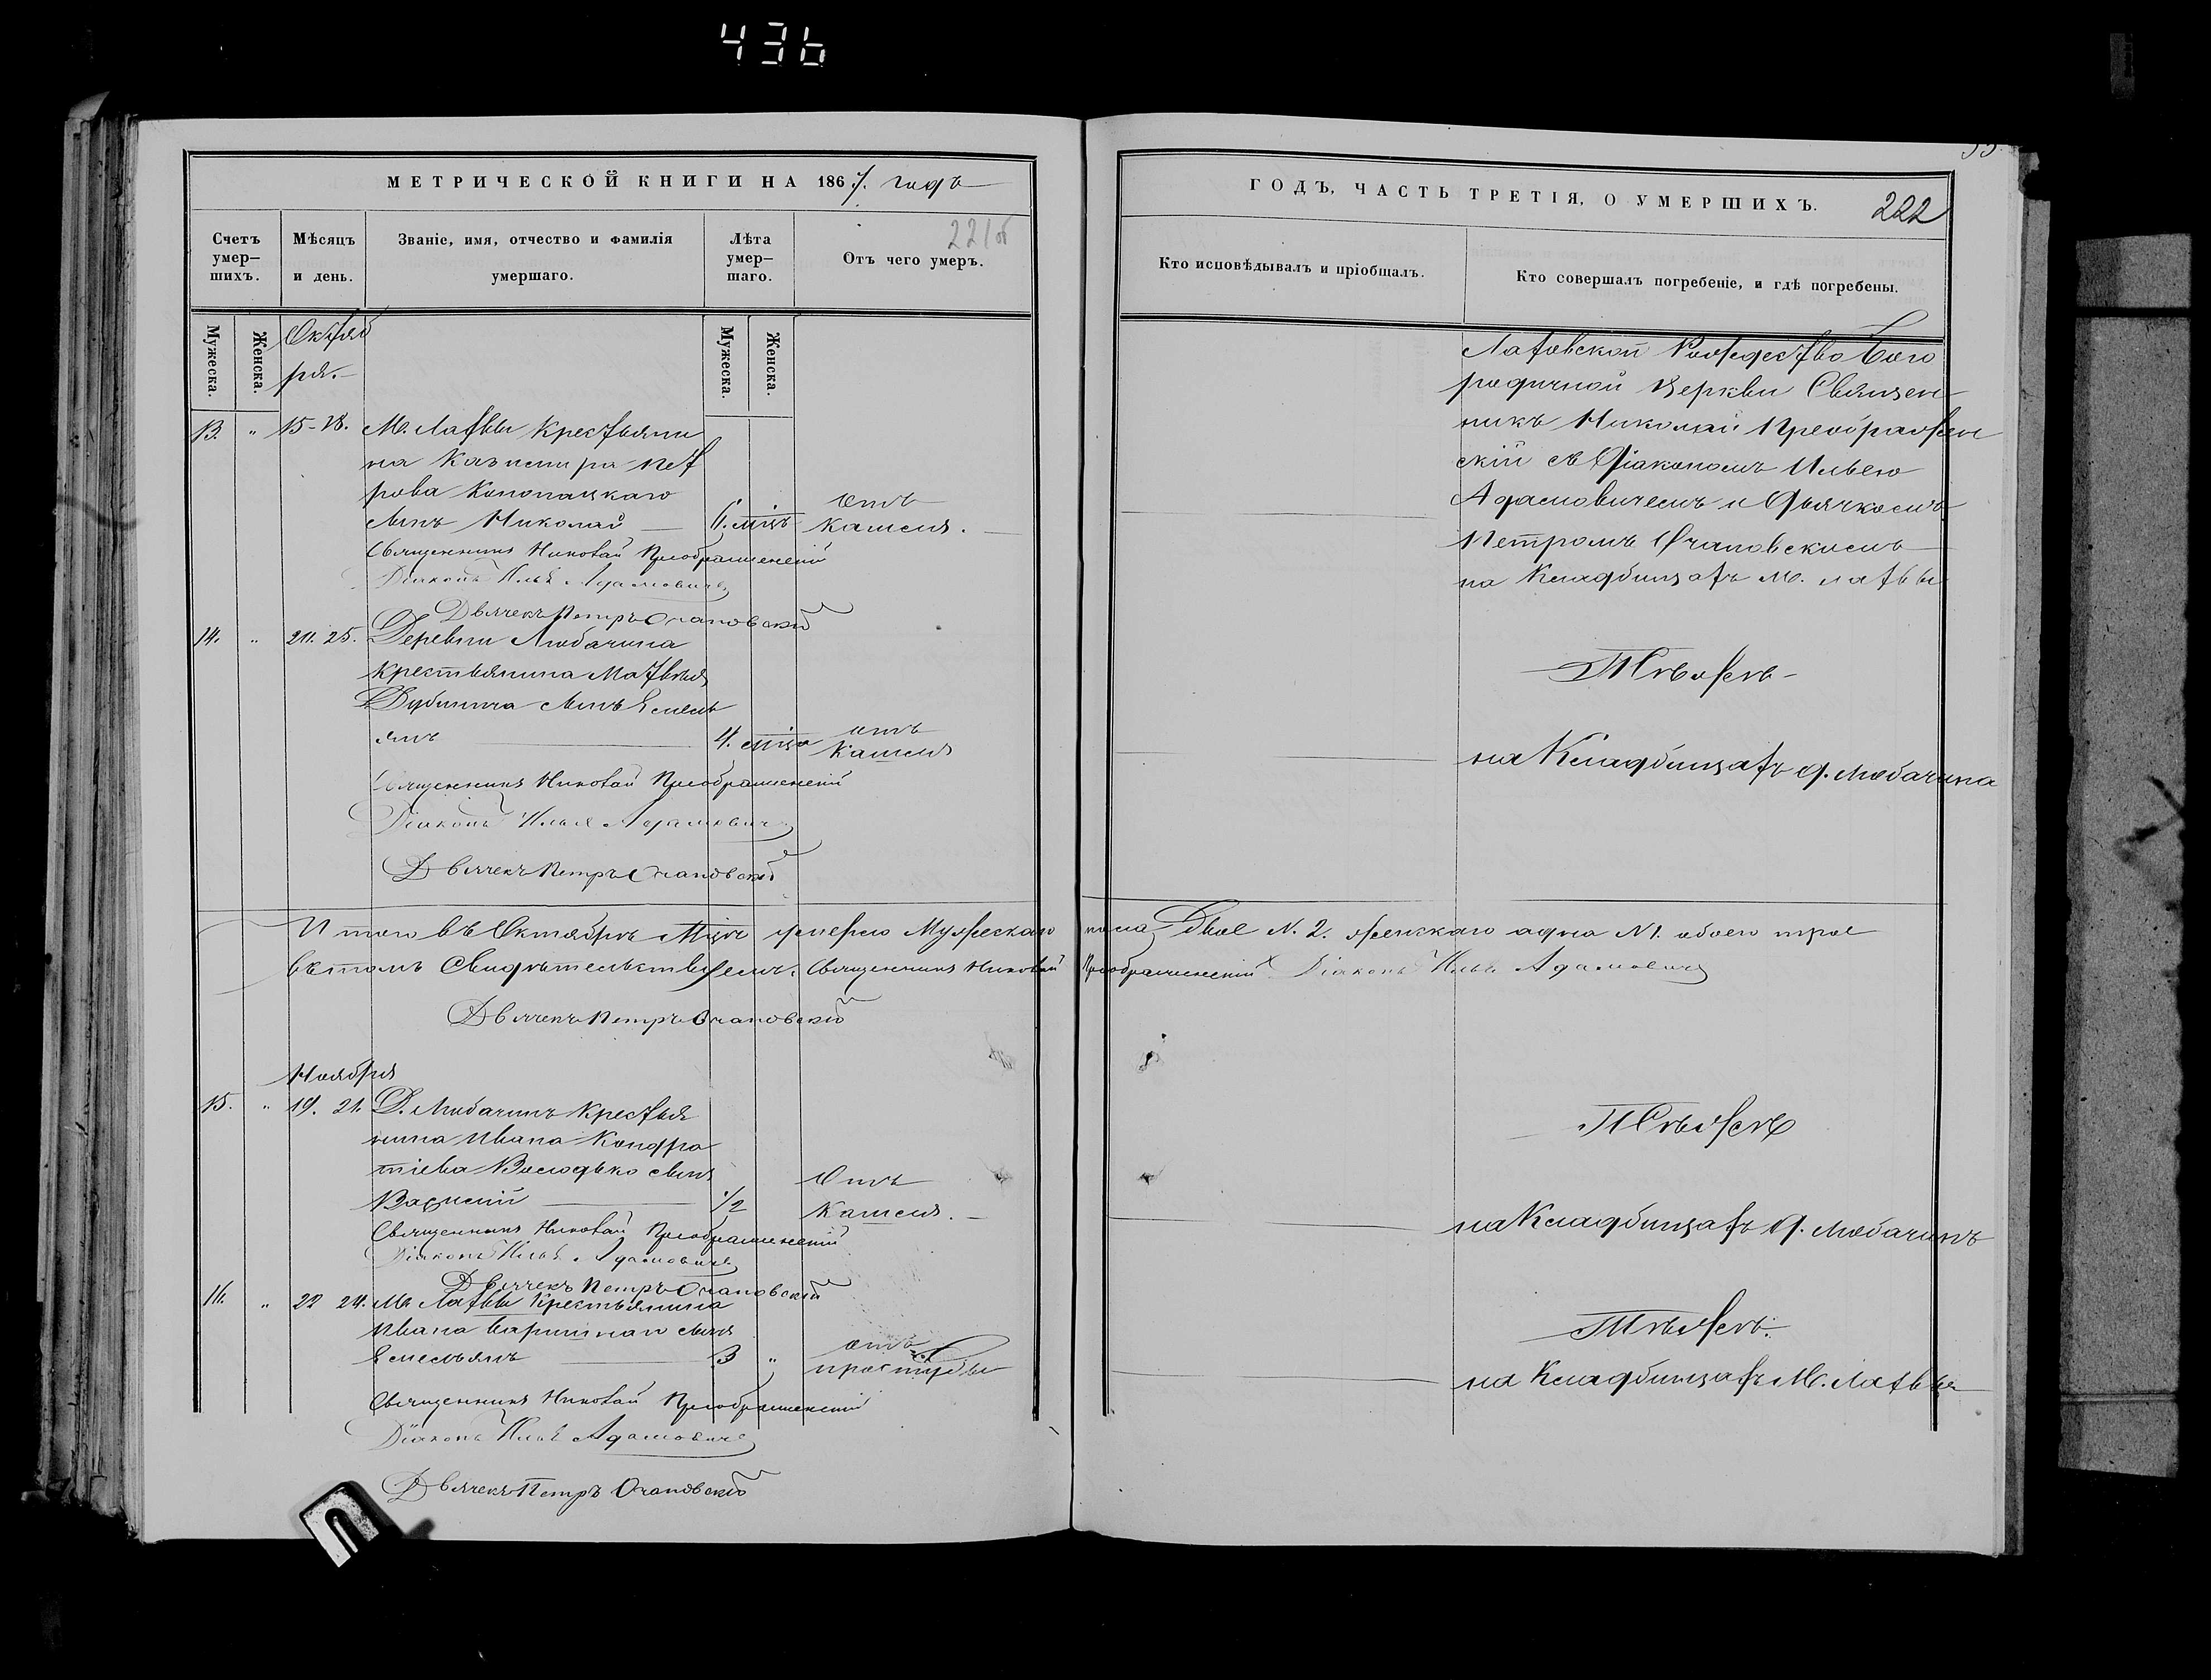 436
МЕТРИЧЕСКОЙ КНИГИ НА 1867. годъ
221об
Счетъ умер–шихъ.
Мѣсяцъ и день.
Званіе, имя, отчество и фамилія умершаго.
Лѣта умер–шаго.
Отъ чего умеръ.
Мужеска.
Женска.
Мужеска.
Женска.
Октяб
ря.
13. " 15-18. М. Латвы крестьяни
на Казимира Пет
рова Конопацкаго
сынъ Николай — 6. мцъ отъ кашля.
Священникъ Николай Преображенскій
Діаконъ Илья Адамовичъ
Дьячекъ Петръ Очаповскій
14. " 25. Деревни Любачина
крестьянина Матвѣя
Дубинича сынъ Емель
янъ — 4. мца отъ кашля
Священникъ Николай Преображенскій
Діаконъ Илья Адамовичъ
Дьячекъ Петръ Очаповскій
Итого въ Октябрѣ Мцѣ умерло Мужескаго пола Двое N. 2. женскаго адна N1. обоего трое
вѣтомъ Свидѣтельствуемъ: Священникъ Николай Преображенскій Діаконъ Илья Адамовичъ
Дьячекъ Петръ Очаповскій
Ноября
15. " 19. 21. Д. Любачинъ крестья
нина Ивана Кондра
тіева Володько сынъ
Василій — 1/2 Отъ кашля.
Священникъ Николай Преображенскій
Діаконъ Илья Адамовичъ
Дьячекъ Петръ Очаповскій
16. " 22 24. М. Латвы Крестьянина
Ивана сынъ
Емельянъ — 3 " отъ простуды
Священникъ Николай Преображенскій
Діаконъ Илья Адамовичъ
Дьячекъ Петръ Очаповскій
ГОДЪ, ЧАСТЬ ТРЕТІЯ, О УМЕРШИХЪ.
222
Кто исповѣдывалъ и пріобщалъ.
Кто совершалъ погребеніе, и гдѣ погребены.
Латовской Рождество Бого
родичной Церкви Священ
никъ Николай Преображен
скій съ Діакономъ Ильею
Адамовичемъ и Дьячкомъ
Петромъ Очаповскимъ
на Кладбищахъ м. Латвы
Тѣмже
на Кладбищахъ д. Любачина
Тѣмже
на Кладбищахъ д. Любачинъ
Тѣмже.
на Кладбищахъ М. Латвы